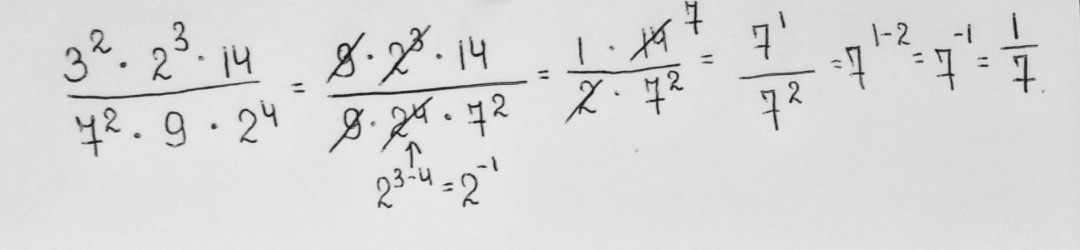 3² · 2³ · 14 / 7² · 9 · 2⁴ = 9 · 2³ · 14 / 9 · 2⁴ · 7² = 1 · 14 7 / 2 · 7² = 7¹ / 7² = 7¹⁻² = 7⁻¹ = 1 / 7
↑
2³⁻⁴ = 2⁻¹